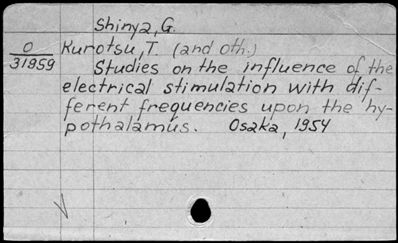 Shinya, G.
O Kurotsu, T. (and oth.)
31959 Studies on the influence of the
electrical stimulation with dif-
ferent frequencies upon the hy-
pothalamus. Osaka, 1954